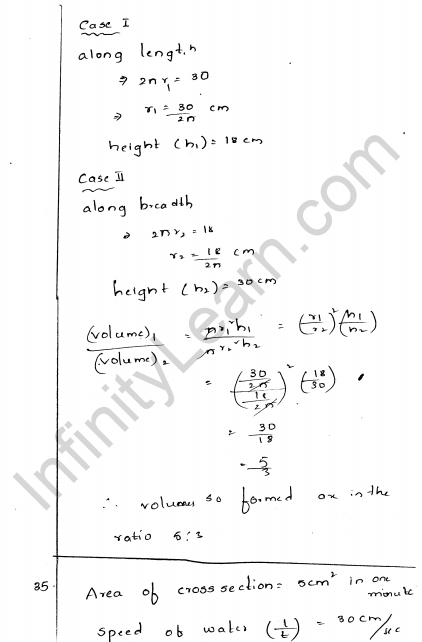 Case I
along length
⇒ 2πr₁ = 30
⇒ r₁ = 30/2π cm
height (h₁) = 18 cm
Case II
along breadth
⇒ 2πr₂ = 18
r₂ = 18/2π cm
height (h₂) = 30 cm
(volume)₁/(volume)₂ = πr₁²h₁/πr₂²h₂ = (r₁/r₂)² (h₁/h₂)
= ((30/2π)/(18/2π))² (18/30)
= 30/18
= 5/3
∴ volumes so formed are in the
ratio 5:3
35. Area of cross section = 5cm² in one minute
speed of water (l/t) = 30 cm/sec
InfinityLearn.com